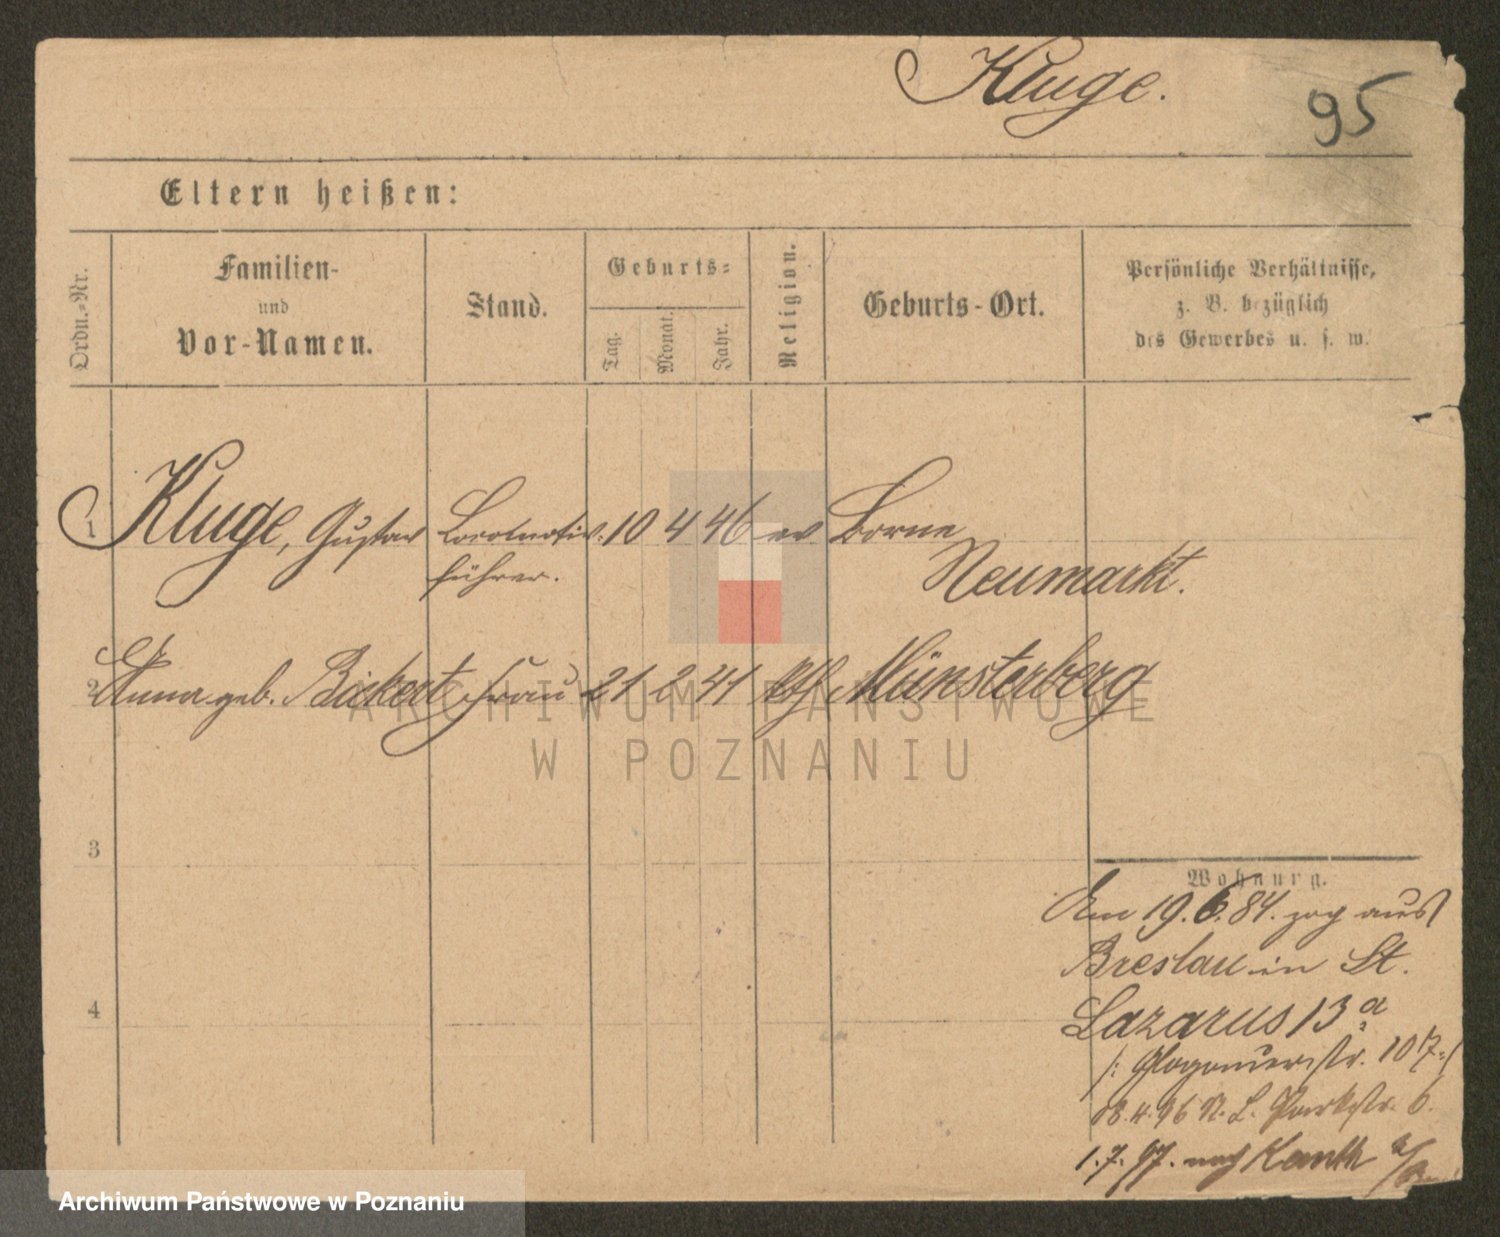 Kluge.
95
Eltern heißen:
Ordn.-Nr.
Familien-
und
Vor-Namen.
Stand.
Geburts-
Tag.
Monat.
Jahr.
Religion.
Geburts-Ort.
Persönliche Verhältnisse,
z. B. bezüglich
des Gewerbes u. s. w.
1 Kluge, Gustav Locomotiv- 10 4 46 ev Borne
führer. Neumarkt.
2 Anna geb. Bickert Frau 21 2 41 kth Münsterberg
ARCHIWUM PAŃSTWOWE
W POZNANIU
3
Wohnung.
Am 19.6.84. zog aus
Breslau in St.
4
Lazarus 13a
/: Glogauerstr. 107 :/
18.4.96 St. L. Parkstr. 6.
1.7.97. nach Kanth
Archiwum Państwowe w Poznaniu